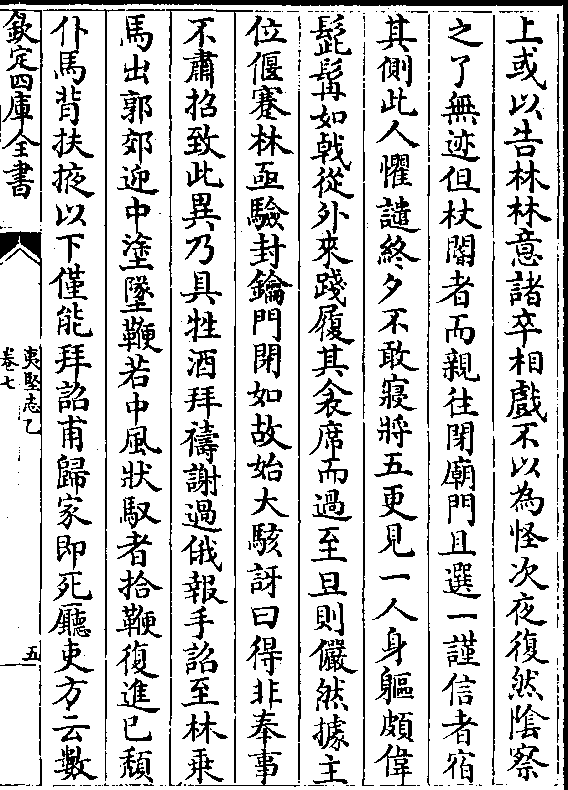 上或以告林林意諸卒相戲不以為怪次夜復然陰察
之了無迹但杖閽者而親往閉廟門且選一謹信者宿
其側此人懼譴終夕不敢寢將五更見一人身軀頗偉
髭髯如戟從外來踐履其衾席而過至旦則儼然據主
位偃蹇林亟驗封鑰門閉如故始大駭訝曰得非奉事
不肅招致此異乃具牲酒拜禱謝過俄報手詔至林乗
馬出郭郊迎中塗墜鞭若中風狀馭者拾鞭復進已頽
仆馬背扶掖以下僅能拜詔甫歸家即死廳吏方云數
欽定四庫全書
夷堅志乙
卷七
五